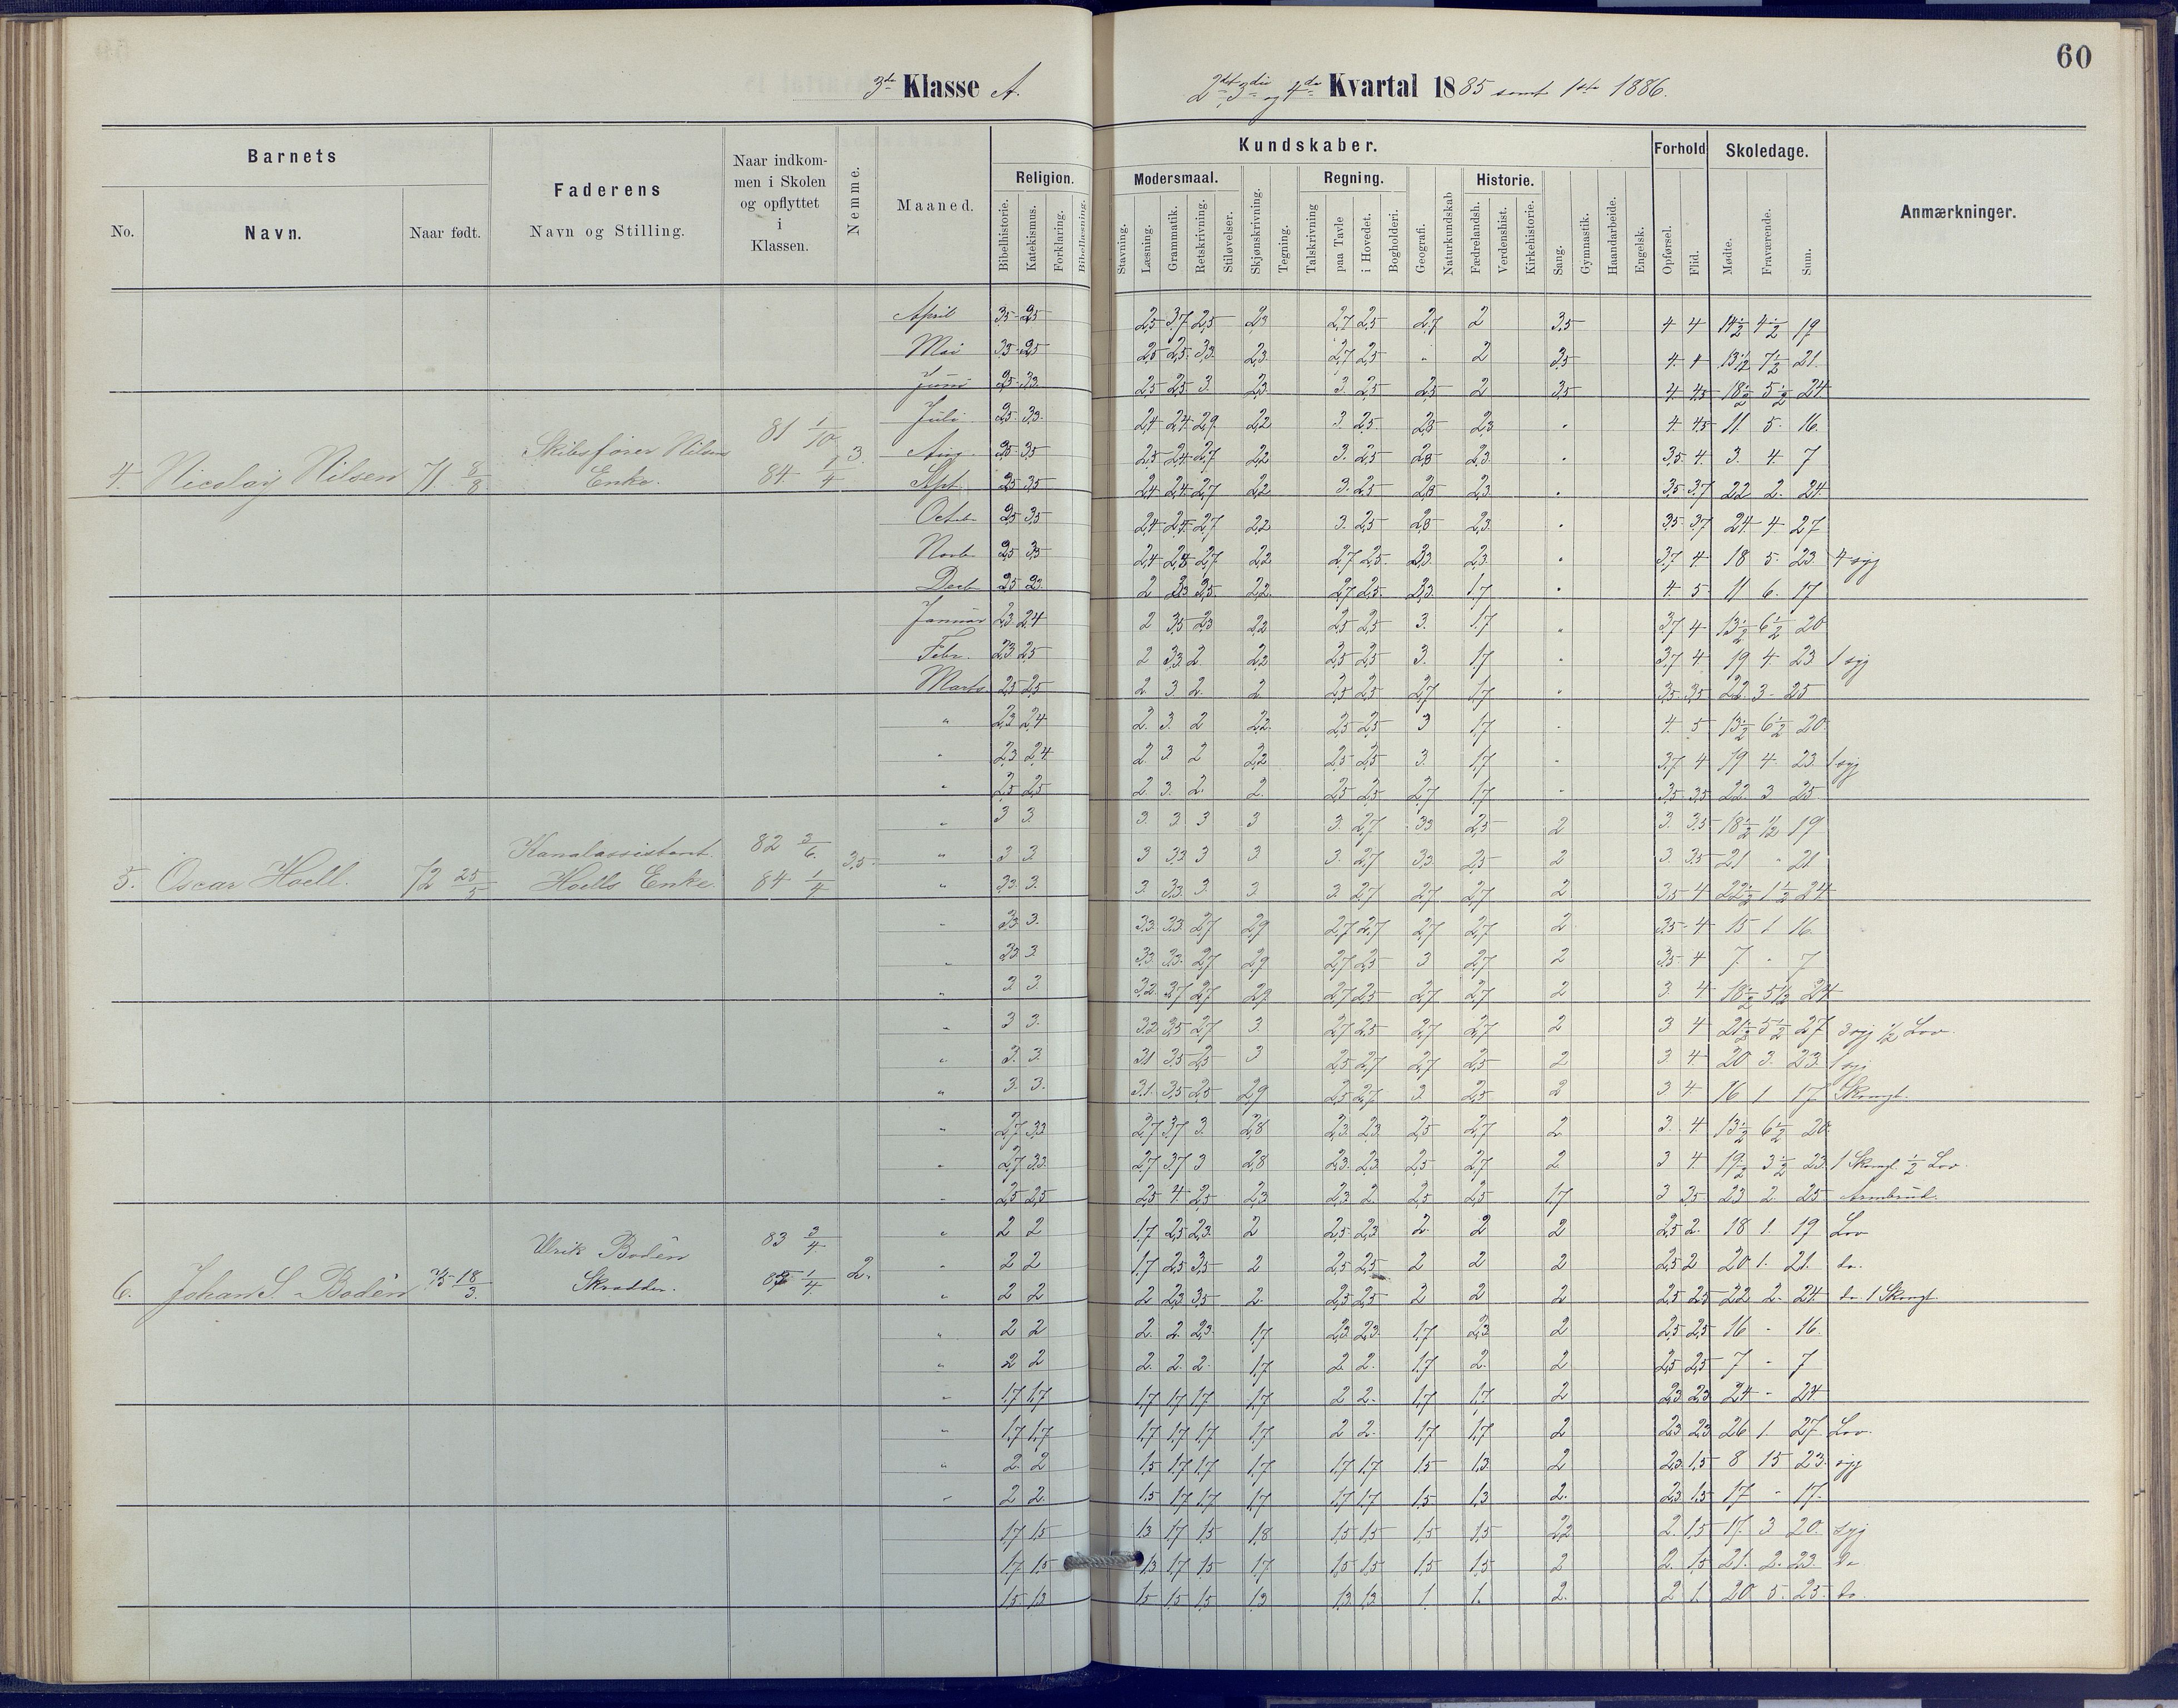 60
3de Klasse A.
2det 3die og 4de Kvartal 1885 samt 1ste 1886.
Barnets
No.
Navn.
Naar født.
Faderens
Navn og Stilling.
Naar indkom-
men i Skolen
og opflyttet
i
Klassen.
Nemme.
Maaned.
Kundskaber.
Religion.
Bibelhistorie.
Katekismus.
Forklaring.
Bibellæsning.
Modersmaal.
Stavning.
Læsning.
Grammatik.
Retskrivning.
Stiløvelser.
Skjønskrivning.
Tegning.
Regning.
Talskrivning
paa Tavle
i Hovedet.
Bogholderi.
Geografi.
Naturkundskab
Historie.
Fædrelandsh.
Verdenshist.
Kirkehistorie.
Sang.
Gymnastik.
Haandarbeide.
Engelsk.
Forhold
Opførsel.
Flid.
Skoledage.
Mødte.
Fraværende.
Sum.
Anmærkninger.
April 3,5 2,5 2,5 3,7 2,5 2,3 2,7 2,5 2,7 2 3,5 4 4 14½ 4½ 19
Mai 3,5 2,5 2,5 2,5 3,3 2,3 2,7 2,5 " 2 3,5 4 4 13½ 7½ 21
Juni 2,5 3,3 2,5 2,5 3 2,3 3 2,5 2,5 2 3,5 4 4,5 18½ 5½ 24
Juli 2,5 3,3 2,4 2,4 2,9 2,2 3 2,5 2,8 2,3 " 4 4,5 11 5 16
4. Nicolay Nilsen 71 8/8 Skibsfører Nilsens Enke. 81 1/10 84 1/4 3.
Aug. 3,5 3,5 2,5 2,4 2,7 2,2 3 2,5 2,8 2,3 " 3,5 4 3 4 7
Sept. 2,5 3,5 2,4 2,4 2,7 2,2 3 2,5 2,8 2,3 " 3,5 3,7 22 2 24
Octob. 2,5 3,5 2,4 2,4 2,7 2,2 3 2,5 2,8 2,3 " 3,5 3,7 24 4 27
Novb. 2,5 3,5 2,4 2,8 2,7 2,2 2,7 2,5 3,3 2,3 " 3,7 4 18 5 23 4 syg
Decb. 2,5 2,2 2 3,3 3,5 2,2 2,7 2,5 3,3 1,7 " 4 5 11 6 17
Januar 2,3 2,4 2 3,5 2,3 2,2 2,5 2,5 3 1,7 " 3,7 4 13½ 6½ 20
Febr. 2,3 2,5 2 3,3 2 2,2 2,5 2,5 3 1,7 " 3,7 4 19 4 23 1 syg
Marts 2,5 2,5 2 3 2 2 2,5 2,5 2,7 1,7 " 3,5 3,5 22 3 25
" 2,3 2,4 2 3 2 2,2 2,5 2,5 3 1,7 " 4 5 13½ 6½ 20
" 2,3 2,4 2 3 2 2,2 2,5 2,5 3 1,7 " 3,7 4 19 4 23 1 syg
" 2,5 2,5 2 3 2 2 2,5 2,5 2,7 1,7 " 3,5 3,5 22 3 25
" 3 3 3 3 3 3 3 2,7 3,3 2,5 2 3 3,5 18½ ½ 19
5. Oscar Hoell. 72 25/5 Kanalassistent Hoells Enke. 82 3/6 84 1/4 3,5
" 3 3 3 3,3 3 3 3 2,7 3,3 2,5 2 3 3,5 21 " 21
" 3,3 3 3 3,3 3 3 3 2,7 2,7 2,7 2 3,5 4 22½ 1½ 24
" 3,3 3 3,3 3,3 2,7 2,9 2,7 2,7 2,7 2,7 2 3,5 4 15 1 16
" 3,3 3 3,3 3,3 2,7 2,9 2,7 2,5 3 2,7 2 3,5 4 7 " 7
" 3 3 3,2 3,7 2,7 2,9 2,7 2,5 2,7 2,7 2 3 4 18½ 5½ 24
" 3 3 3,2 3,5 2,7 3 2,7 2,5 2,7 2,7 2 3 4 21½ 5½ 27 3 syg ½ Lov.
" 3 3 3,1 3,5 2,5 3 2,5 2,7 2,7 2,5 2 3 4 20 3 23 1 syg
" 3 3 3,1 3,5 2,5 2,9 2,5 2,7 3 2,5 2 3 4 16 1 17 Skrmgl.
" 2,7 3,3 2,7 3,7 3 2,8 2,3 2,3 2,5 2,7 2 3 4 13½ 6½ 20
" 2,7 3,3 2,7 3,7 3 2,8 2,3 2,3 2,5 2,7 2 3 4 19½ 3½ 23 1 Skrmgl. ½ Lov.
" 2,5 2,5 2,5 4 2,5 2,3 2,3 2 2,5 2,5 1,7 3 3,5 23 2 25 Armbrud.
" 2 2 1,7 2,5 2,3 2 2,5 2,3 2 2 2 2,5 2 18 1 19 Lov
6. Johan S. Bodén 75 18/3 Ulrik Bodén Skrædder. 83 3/4 85 1/4 2.
" 2 2 1,7 2,5 3,5 2 2,5 2,5 2 2 2 2,5 2 20 1 21 do.
" 2 2 2 2,3 3,5 2 2,5 2,5 2 2 2 2,5 2,5 22 2 24 do 1 Skrmgl.
" 2 2 2 2 2,3 1,7 2,3 2,3 1,7 2,3 2 2,5 2,5 16 " 16
" 2 2 2 2 2 1,7 2 2 1,7 2 2 2,5 2,5 7 " 7
" 1,7 1,7 1,7 1,7 1,7 1,7 2 2 1,7 1,7 2 2,3 2,3 24 " 24
" 1,7 1,7 1,7 1,7 1,7 1,7 2 2 1,7 1,7 2 2,3 2,3 26 1 27 Lov.
" 2 2 1,5 1,7 1,7 1,7 1,7 1,7 1,5 1,3 2 2,3 1,5 8 15 23 syg
" 2 2 1,5 1,7 1,7 1,7 1,7 1,7 1,5 1,3 2 2,3 1,5 17 " 17
1,7 1,5 1,3 1,7 1,5 1,8 1,5 1,5 1,5 1,5 2,2 2 1,5 17 3 20 syg
1,7 1,5 1,3 1,7 1,5 1,7 1,5 1,5 1,5 1,5 2 2 1,5 21 2 23 Do
1,5 1,3 1,5 1,5 1,5 1,3 1,3 1,3 1 1 2 2 1 20 5 25 do.